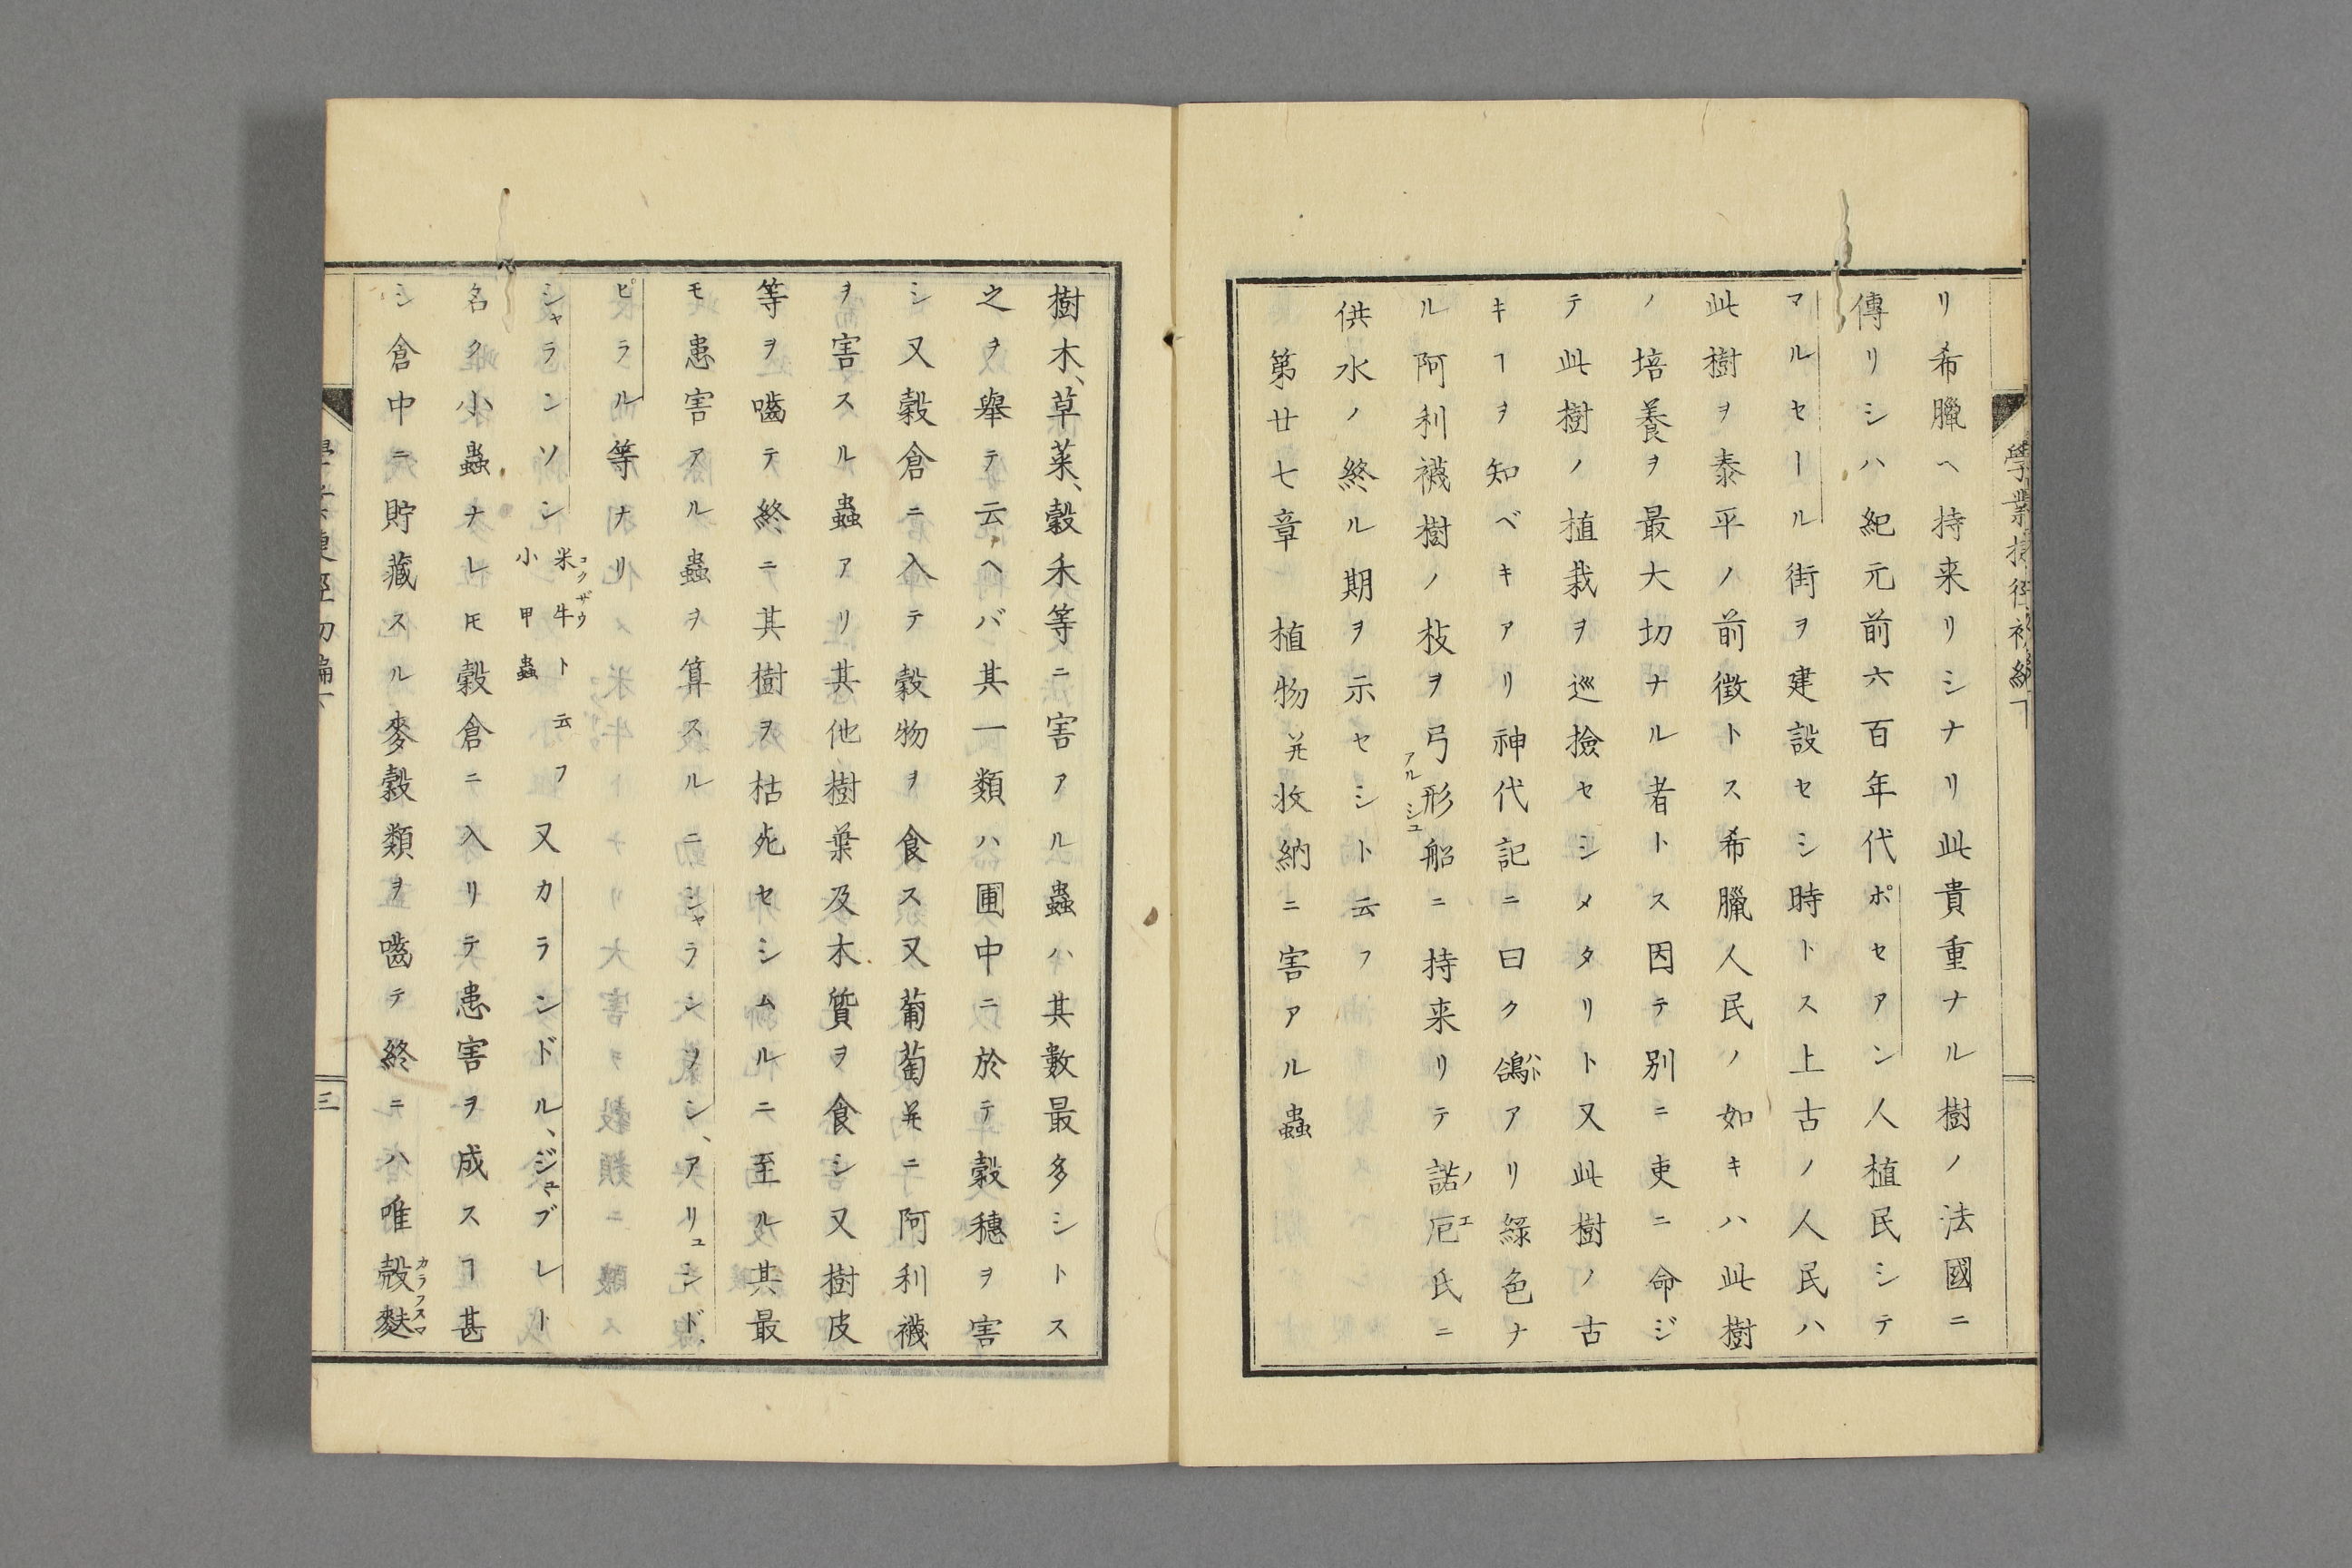 リ希臘ヘ持来リシナリ此貴重ナル樹ノ法國ニ
傳リシハ紀元前六百年代ポセアン人植民シテ
マルセール街ヲ建設セシ時トス上古ノ人民ハ
此樹ヲ泰平ノ前徴トス希臘人民ノ如キハ此樹
ノ培養ヲ最大切ナル者トス因テ別ニ吏ニ命ジ
テ此樹ノ植栽ヲ巡撿セシメタリト又此樹ノ古
キヿヲ知ベキアリ神代記ニ曰ク鴿アリ綠色ナ
ル阿利襪樹ノ枝ヲ弓形船アルシユニ持来リテ諾厄ノエ氏ニ
供水ノ終ル期ヲ示セシト云フ
第廿七章 植物并收納ニ害アル蟲
樹木、草菜、穀禾等ニ害アル蟲ハ其數最多シトス
之ヲ舉テ云ヘバ其一類ハ圃中ニ於テ穀穗ヲ害
シ又穀倉ニ入テ穀物ヲ食ス又葡萄并ニ阿利襪
ヲ害スル蟲アリ其他樹葉及木質ヲ食シ又樹皮
等ヲ嚙テ終ニ其樹ヲ枯死セシムルニ至ル其最
モ患害アル蟲ヲ算スルニシャラシソシ、アリュシド、
ピラル等ナリ
シャランソシ米牛コクザウト云フ小甲蟲又カランドル、ジュブレト
名ク小蟲ナレ𪜈穀倉ニ入リテ患害ヲ成スヿ甚
シ倉中ニ貯藏スル麥穀類ヲ嚙テ終ニハ唯殼麩カラフスマ
三